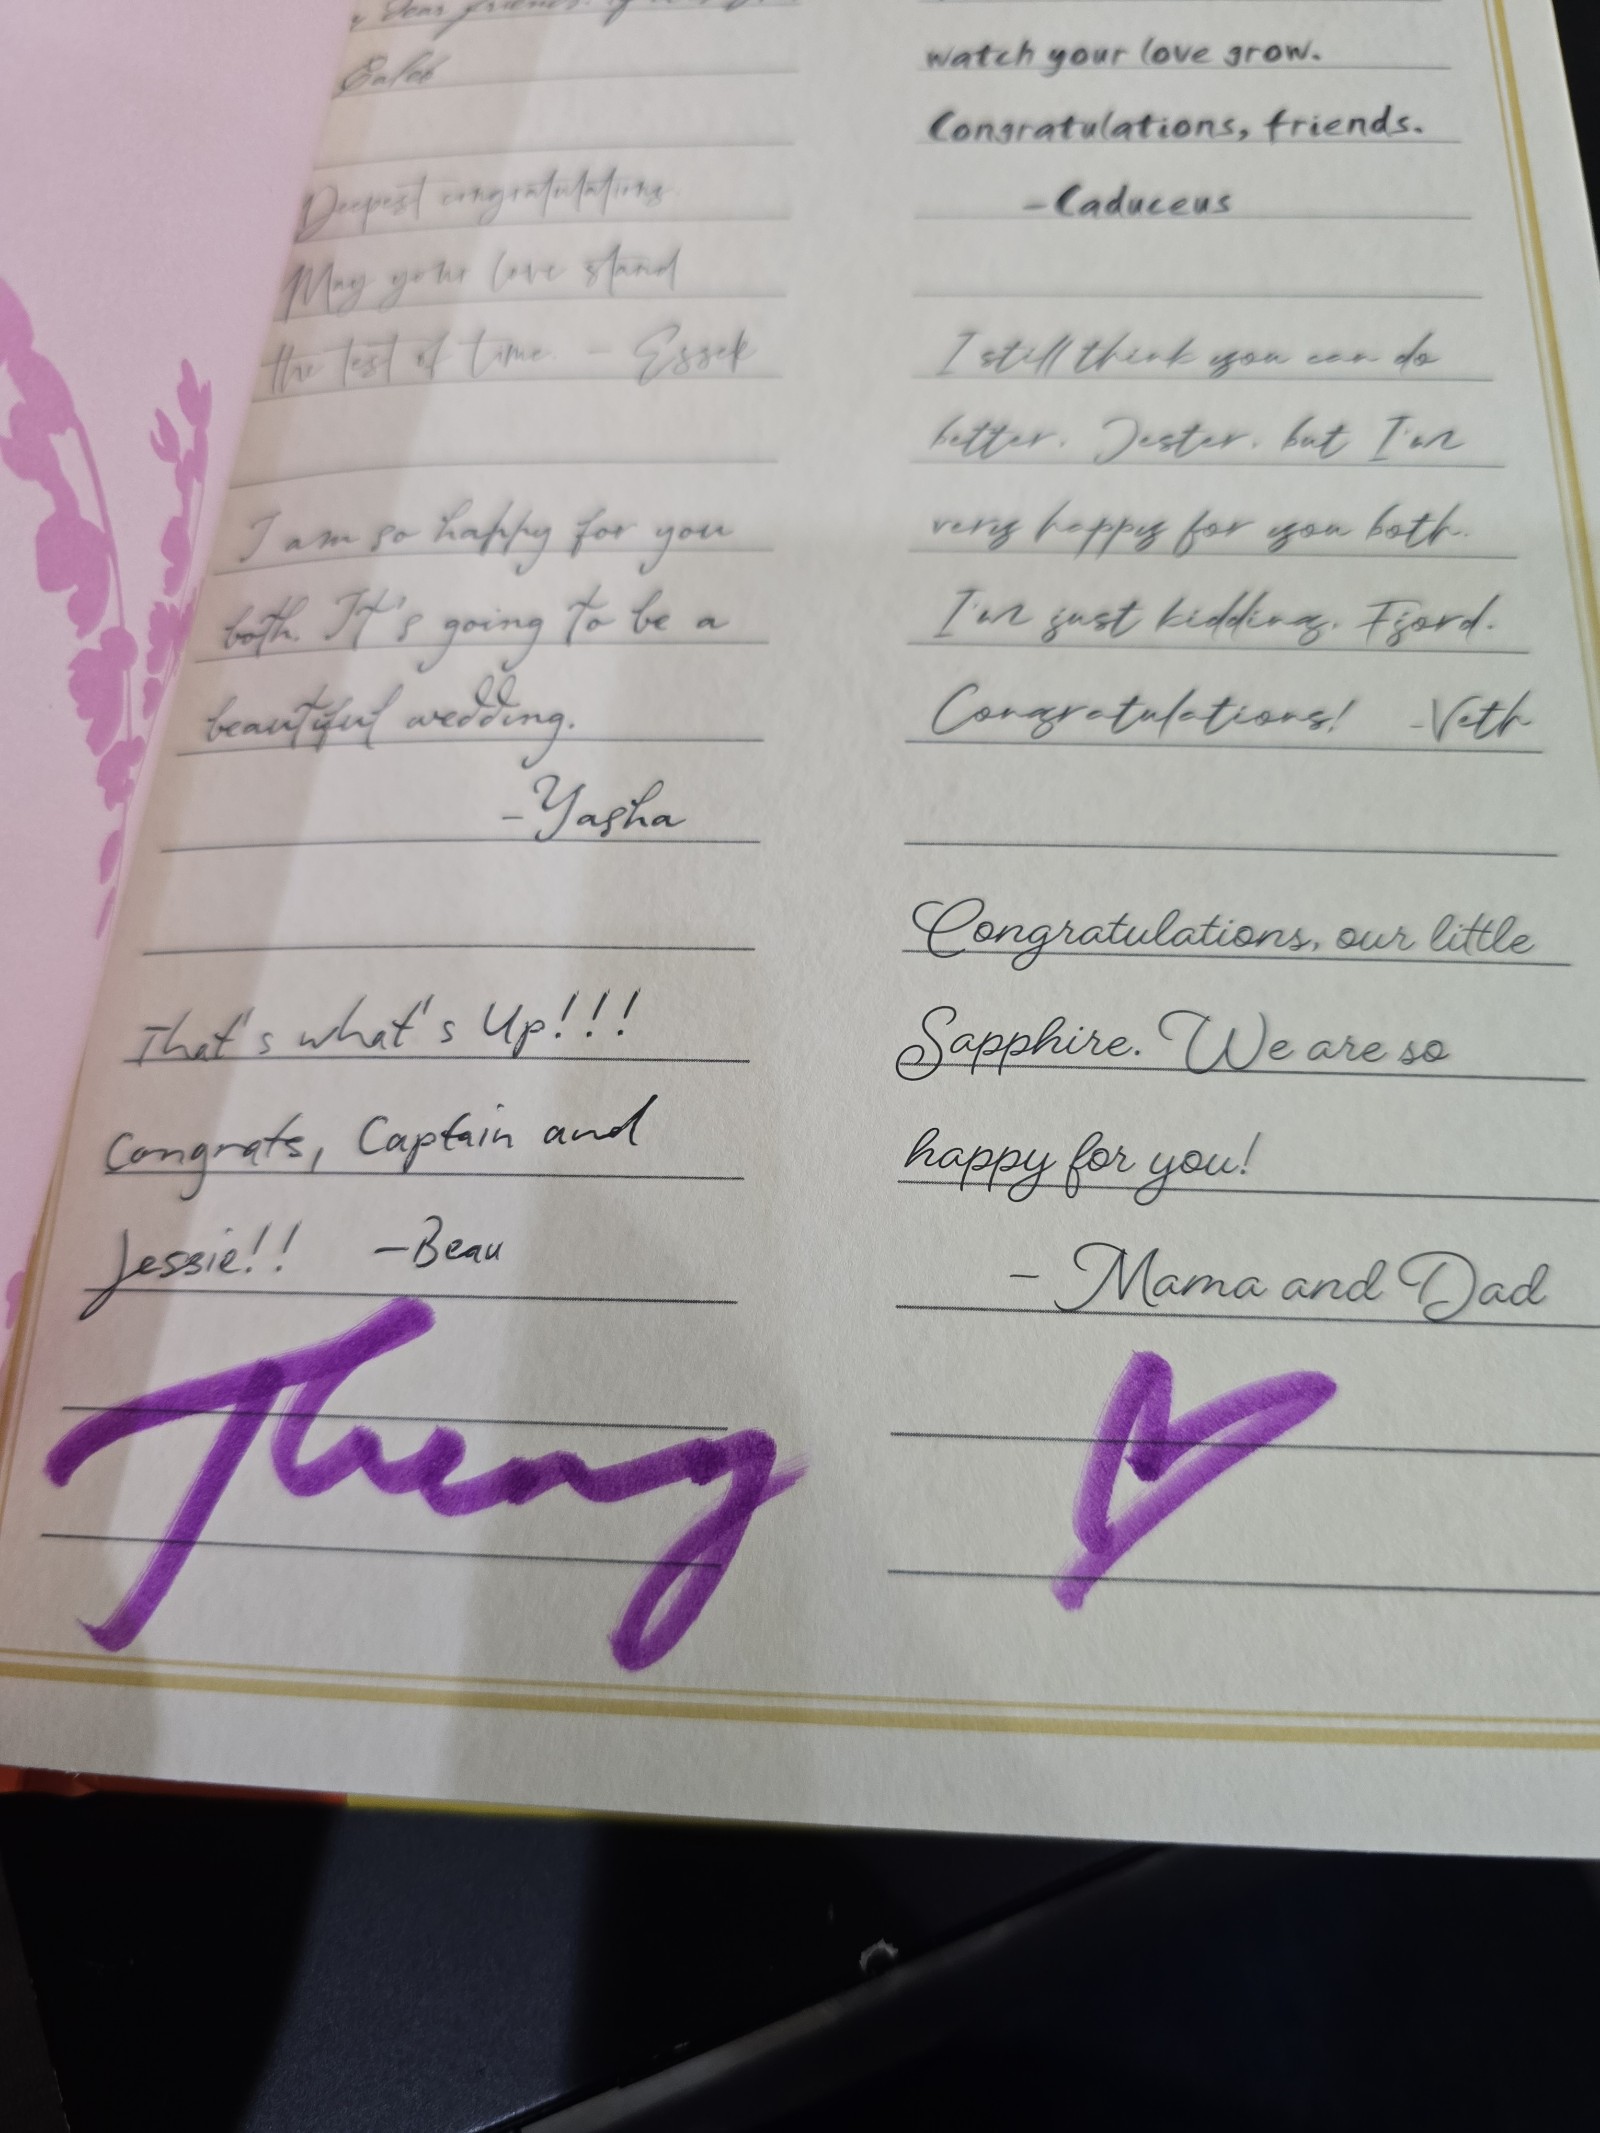 dear friends.
Caleb
Deepest congratulations.
May your love stand
the test of time. - Essek
I am so happy for you
both. It's going to be a
beautiful wedding.
-Yasha
That's what's Up!!!
Congrats, Captain and
Jessie!! -Beau
watch your love grow.
Congratulations, friends.
-Caduceus
I still think you can do
better, Jester, but I'm
very happy for you both.
I'm just kidding, Fjord.
Congratulations! -Veth
Congratulations, our little
Sapphire. We are so
happy for you!
- Mama and Dad